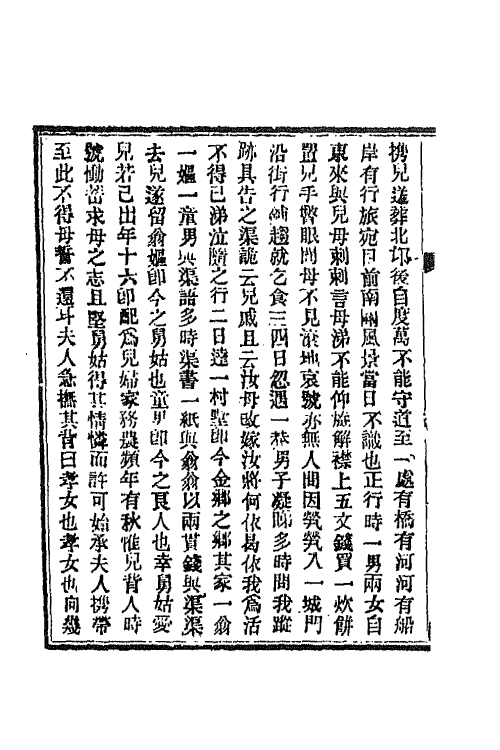 携兒送葬北邙後自度萬不能守道至一處有橋有河河有船
岸有行旅宛目前南關風景當日不識也正行時一男兩女自
東來與兒母剌剌言母涕不能仰旋解襟上五文錢買一炊餅
置兒手瞥眼間母不見滾地哀號亦無人問因煢煢入一城門
沿街行匍趨就乞食三四日忽遇一恭男子凝睇多時問我蹤
跡具告之渠詭云兒戚且云汝母改嫁汝將何依曷依我爲活
不得已涕泣隨之行二日達一村墅即今金鄉之鄉其家一翁
一嫗一童男與渠語多時渠書一紙與翁翁以兩貫錢與渠渠
去兒遂留翁嫗即今之舅姑也童男即今之良人也幸舅姑愛
兒若己出年十六即配爲兒婦家務農頻年有秋惟兒背人時
號慟嘗求母之志且堅舅姑得其情憐而許可始承夫人携帶
至此不得母誓不還耳夫人急撫其背曰孝女也孝女也向幾